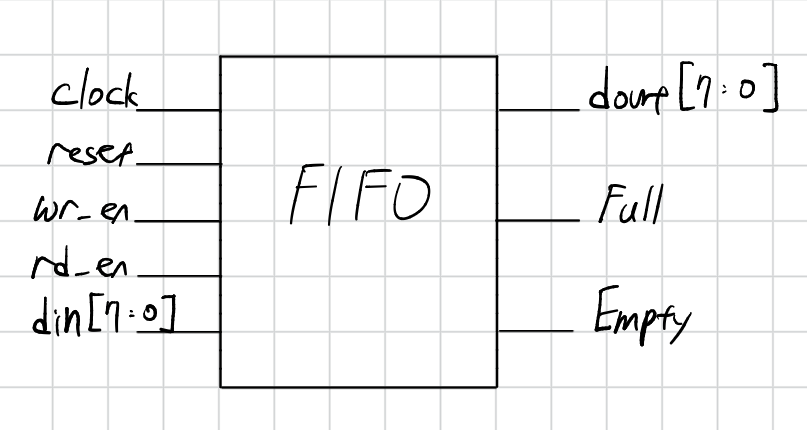 clock
reset
wr_en
rd_en
din[7:0]
FIFO
dout[7:0]
Full
Empty